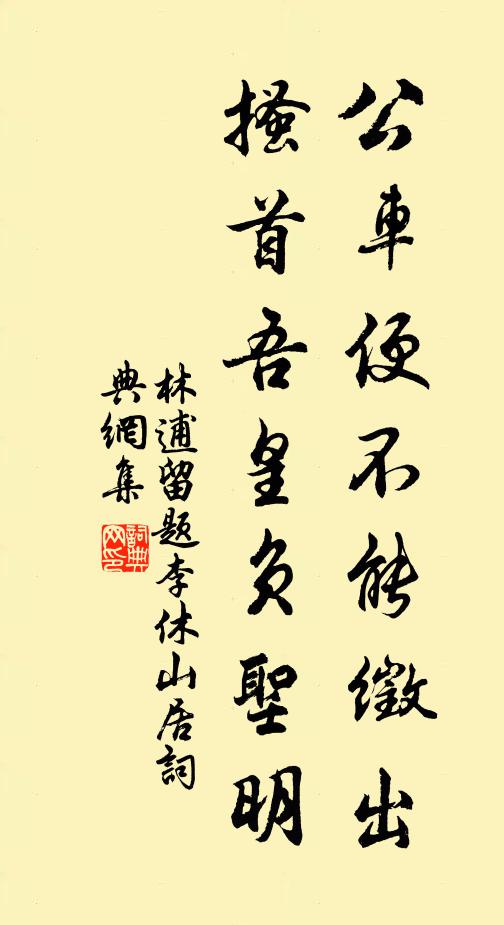 公車便不能徵出
搔首吾皇負聖明
林逋留題李休山居詞
典網集
詞典
网印